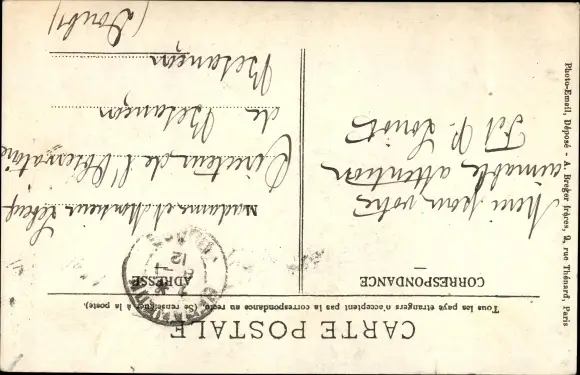 CARTE POSTALE
Tous les pays étrangers n'acceptent pas la correspondance au recto. (Se renseigner à la poste).
CORRESPONDANCE
ADRESSE
Merci pour votre
aimable attention
Madame et Monsieur Lebeuf
Directeur de l'Observatoire
de Besançon
Besançon
(Doubs)
Photo-Email, Déposé - A. Breger frères, 9, rue Thénard, Paris